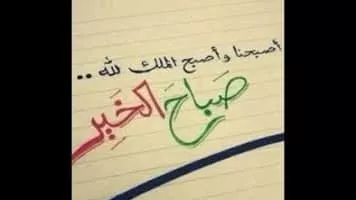 أصبحنا وأصبح الملك لله ..
صَبَاحَ الخَيِر